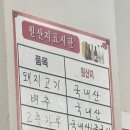 원산지표시판
품목 원산지
돼지고기 국내산
배추 국내산
고춧가루 국내산